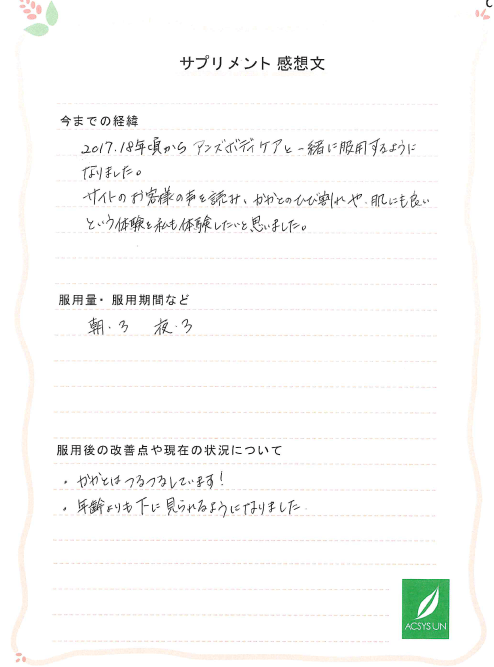 サプリメント 感想文
今までの経緯
2017.18年頃から アンズボディケアと一緒に服用するように
なりました。
サイトのお客様の声を読み、かかとのひび割れや、肌にも良い
という体験を私も体験したいと思いました。
服用量・服用期間など
朝・3 夜・3
服用後の改善点や現在の状況について
・かかとはつるつるしています!
・年齢よりも下に見られるようになりました
ACSYS UN